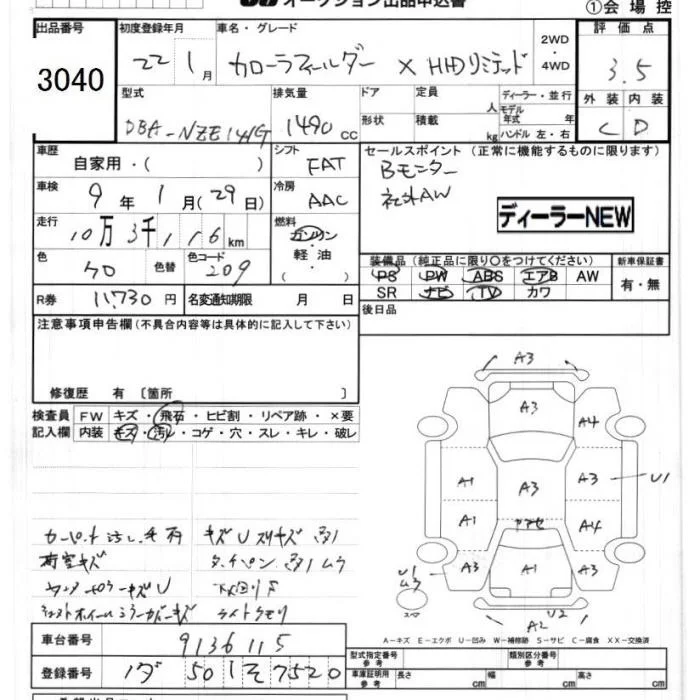 オークション出品申込書
①会場控
出品番号
3040
初度登録年月
22 1月
車名・グレード
カローラフィールダー X HIDリミテッド
2WD・4WD
評価点
3.5
外装 内装
C D
型式
DBA-NZE141G
排気量
1490cc
ドア
形状
定員 人
積載 kg
ディーラー・並行
モデル年式 年
ハンドル 左・右
車歴
自家用・( )
シフト
FAT
セールスポイント (正常に機能するものに限ります)
Bモニター
社外AW
ディーラーNEW
車検
9年1月(29日)
冷房
AAC
走行
10万3千116km
燃料
ガソリン・軽油・( )
色
クロ
色替
色コード
209
装備品 (純正品に限り○をつけてください)
PS PW ABS エアB AW
SR ナビ TV カワ
新車保証書
有・無
R券
11,730円
名変通知期限 月 日
後日品
注意事項申告欄(不具合内容等は具体的に記入して下さい)
修復歴 有 〔箇所 〕
検査員記入欄
FW キズ・飛石・ヒビ割・リペア跡・×要
内装 キズ・汚レ・コゲ・穴・スレ・キレ・破レ
荷室キズ
下回りサ
ライトクモリ
A3
A3
A4
A1 A3 A3 U1
A1 A4
U1
A3 A1 A3
スペア
U2
A2
A-キズ E-エクボ U-凹み W-補修跡 S-サビ C-腐食 XX-交換済
車台番号
9136115
登録番号
501 そ 7520
型式指定番号 参考
類別区分番号 参考
車庫証明用 参考
長さ cm
幅 cm
高さ cm